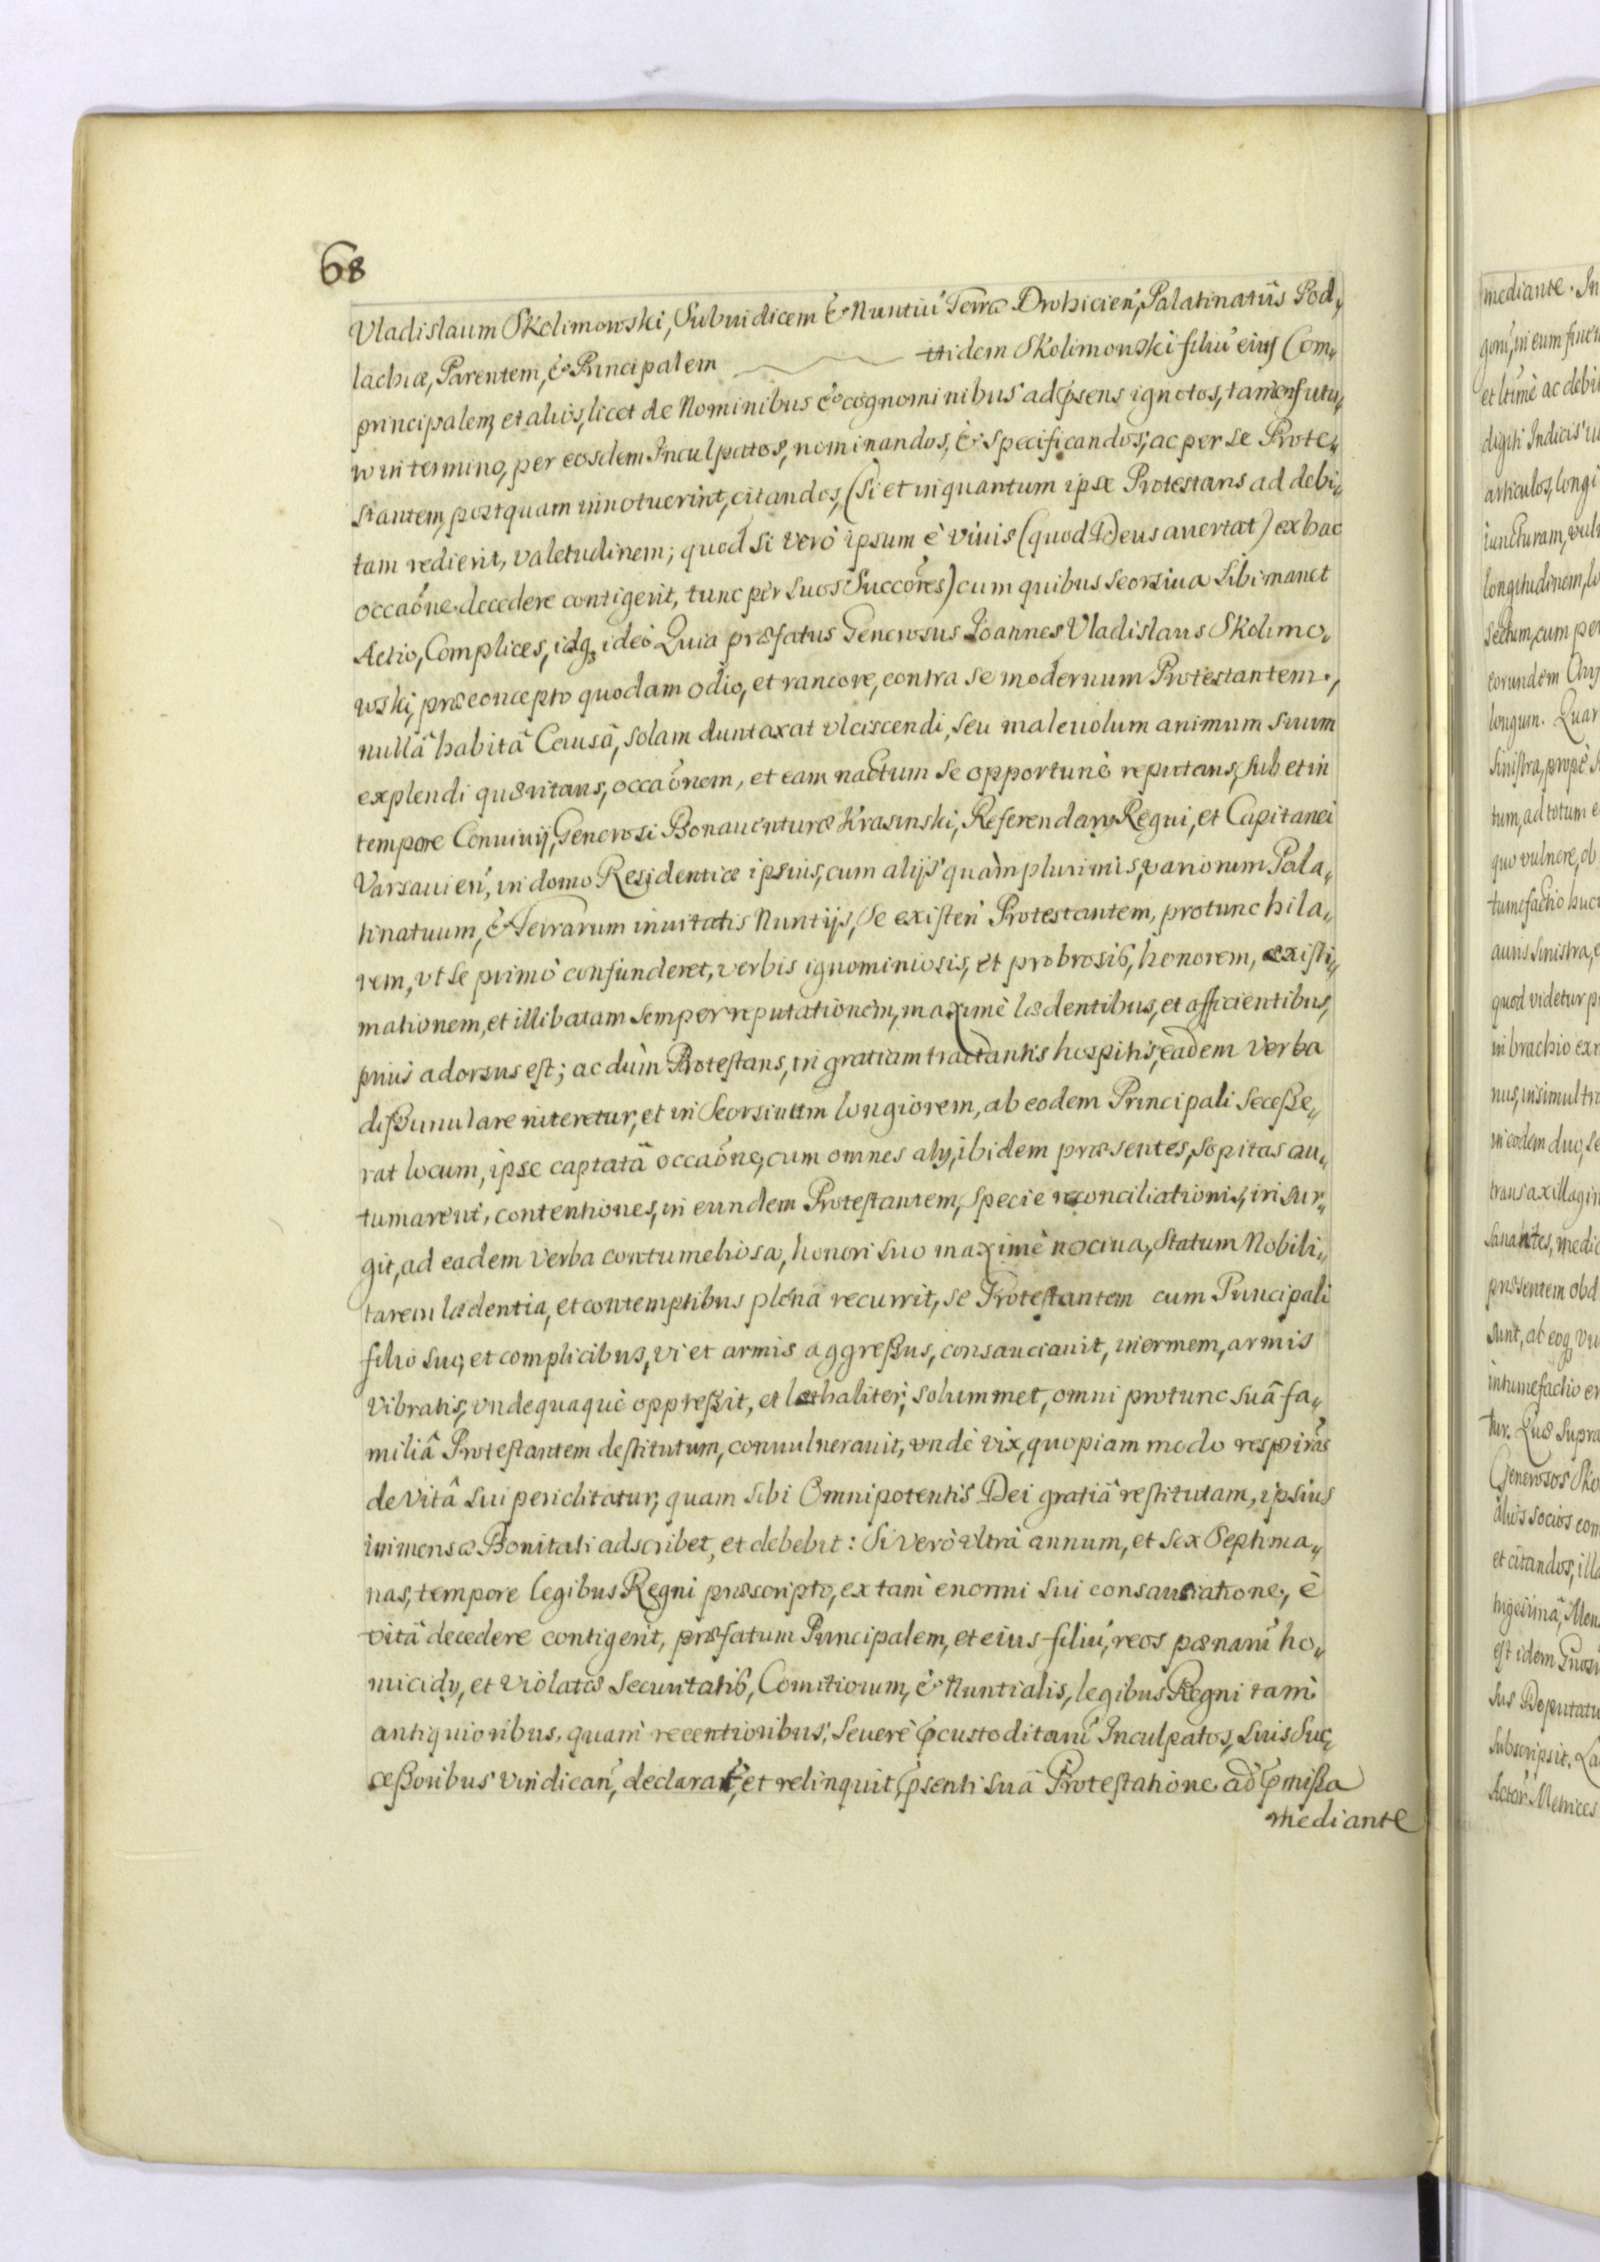 68
Vladislaum Skolimowski, Subiudicem & Nuntiũ Terræ Drohicień, Palatinatûs Pod„
lachiæ, Parentem, & Principalem itidem Skolimowski filiũ eius Com„
principalem, et alios, licet de Nominibus & cognominibus ad p̃sens ignotos, tamen futu„
ro in termino, per eosdem Inculpatos, nominandos, & specificandos, ac per se Prote„
stantem, postquam innotuerint, citandos, (si et inquantum ipse Protestans ad debi„
tam redierit, valetudinem; quod si verò ipsum è viuis (quod Deus auertat) ex hac
occaõne decedere contigerit, tunc per suos Succõres) cum quibus seorsiua sibi manet
Actio, Complices, idq3 ideò Quia præfatus Generosus Ioannes Vladislaus Skolimo„
wski, præconcepto quodam odio, et rancore, contra se modernum Protestantem,
nullâ habitâ Causâ, solam duntaxat vlciscendi, seu maleuolum animum suum
explendi quæritans, occaõnem, et eam nactum se opportunè reputans, sub et in
tempore Conuiuij, Generosi Bonauenturæ Krasinski, Referendarij Regni, et Capitanei
Varsauień, in domo Residentiæ ipsius, cum alijs quàmplurimis, variorum Pala„
tinatuum, & Terrarum inuitatis Nuntijs, se existeń Protestantem, protunc hila„
rem, vt se primò confunderet, verbis ignominiosis, et probrosis, honorem, existi„
mationem, et illibatam semper reputationem, maximè lædentibus, et afficientibus,
priùs adorsus est; ac dùm Protestans, in gratiam tractantis hospitis, eadem verba
dissimulare niteretur, et in seorsiuum longiorem, ab eodem Principali secesse„
rat locum, ipse captatâ occaõne, cum omnes alij, ibidem præsentes, sopitas au„
tumarent, contentiones, in eundem Protestantem, specie reconciliationis, insur„
git, ad eadem verba contumeliosa, honori suo maximè nociua, statum Nobili„
tarem lædentia, et contemptibus plena recurrit, se Protestantem cum Principali
filio suo, et complicibus, vi et armis aggressus, consauciauit, inermem, armis
vibratis, vndequaquè oppressit, et læthaliter, solummet, omni protunc suâ fa„
miliâ Protestantem destitutum, conuulnerauit, vndè vix, quopiam modo respirãs
de vitâ sui periclitatur, quam sibi Omnipotentis Dei gratiâ restitutam, ipsius
immensæ Bonitati adscribet, et debebit: Si verò vltrà annum, et sex Septima„
nas, tempore legibus Regni præscripto, ex tam enormi sui consauciatione, è
vitâ decedere contigerit, præfatum Principalem, et eius filiũ, reos pænarũ ho„
micidij, et violatæ securitatis, Comitiorum, & Nuntialis, legibus Regni tam
antiquioribus, quam recentioribus, seuerè p̱custoditam̃ Inculpatos, suis Suc„
cessoribus vindicań, declarat, et relinquit, p̃senti suâ Protestatione ad p̃missa
mediante